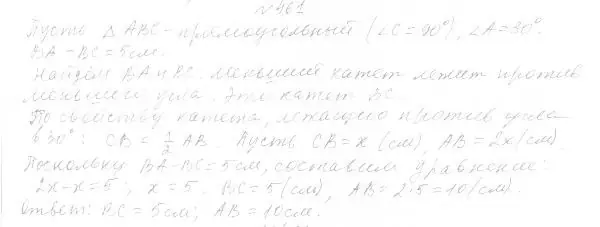 №461
Пусть △ ABC - прямоугольный (∠C = 90°), ∠A = 30°.
BA - BC = 5 см.
Найдём BA и BC. Меньший катет лежит против
меньшего угла. Это катет BC.
По свойству катета, лежащего против угла
в 30°: CB = 1/2 AB. Пусть CB = x (см), AB = 2x (см).
Поскольку BA - BC = 5 см, составим уравнение:
2x - x = 5; x = 5. BC = 5 (см), AB = 2·5 = 10 (см).
Ответ: BC = 5 см; AB = 10 см.